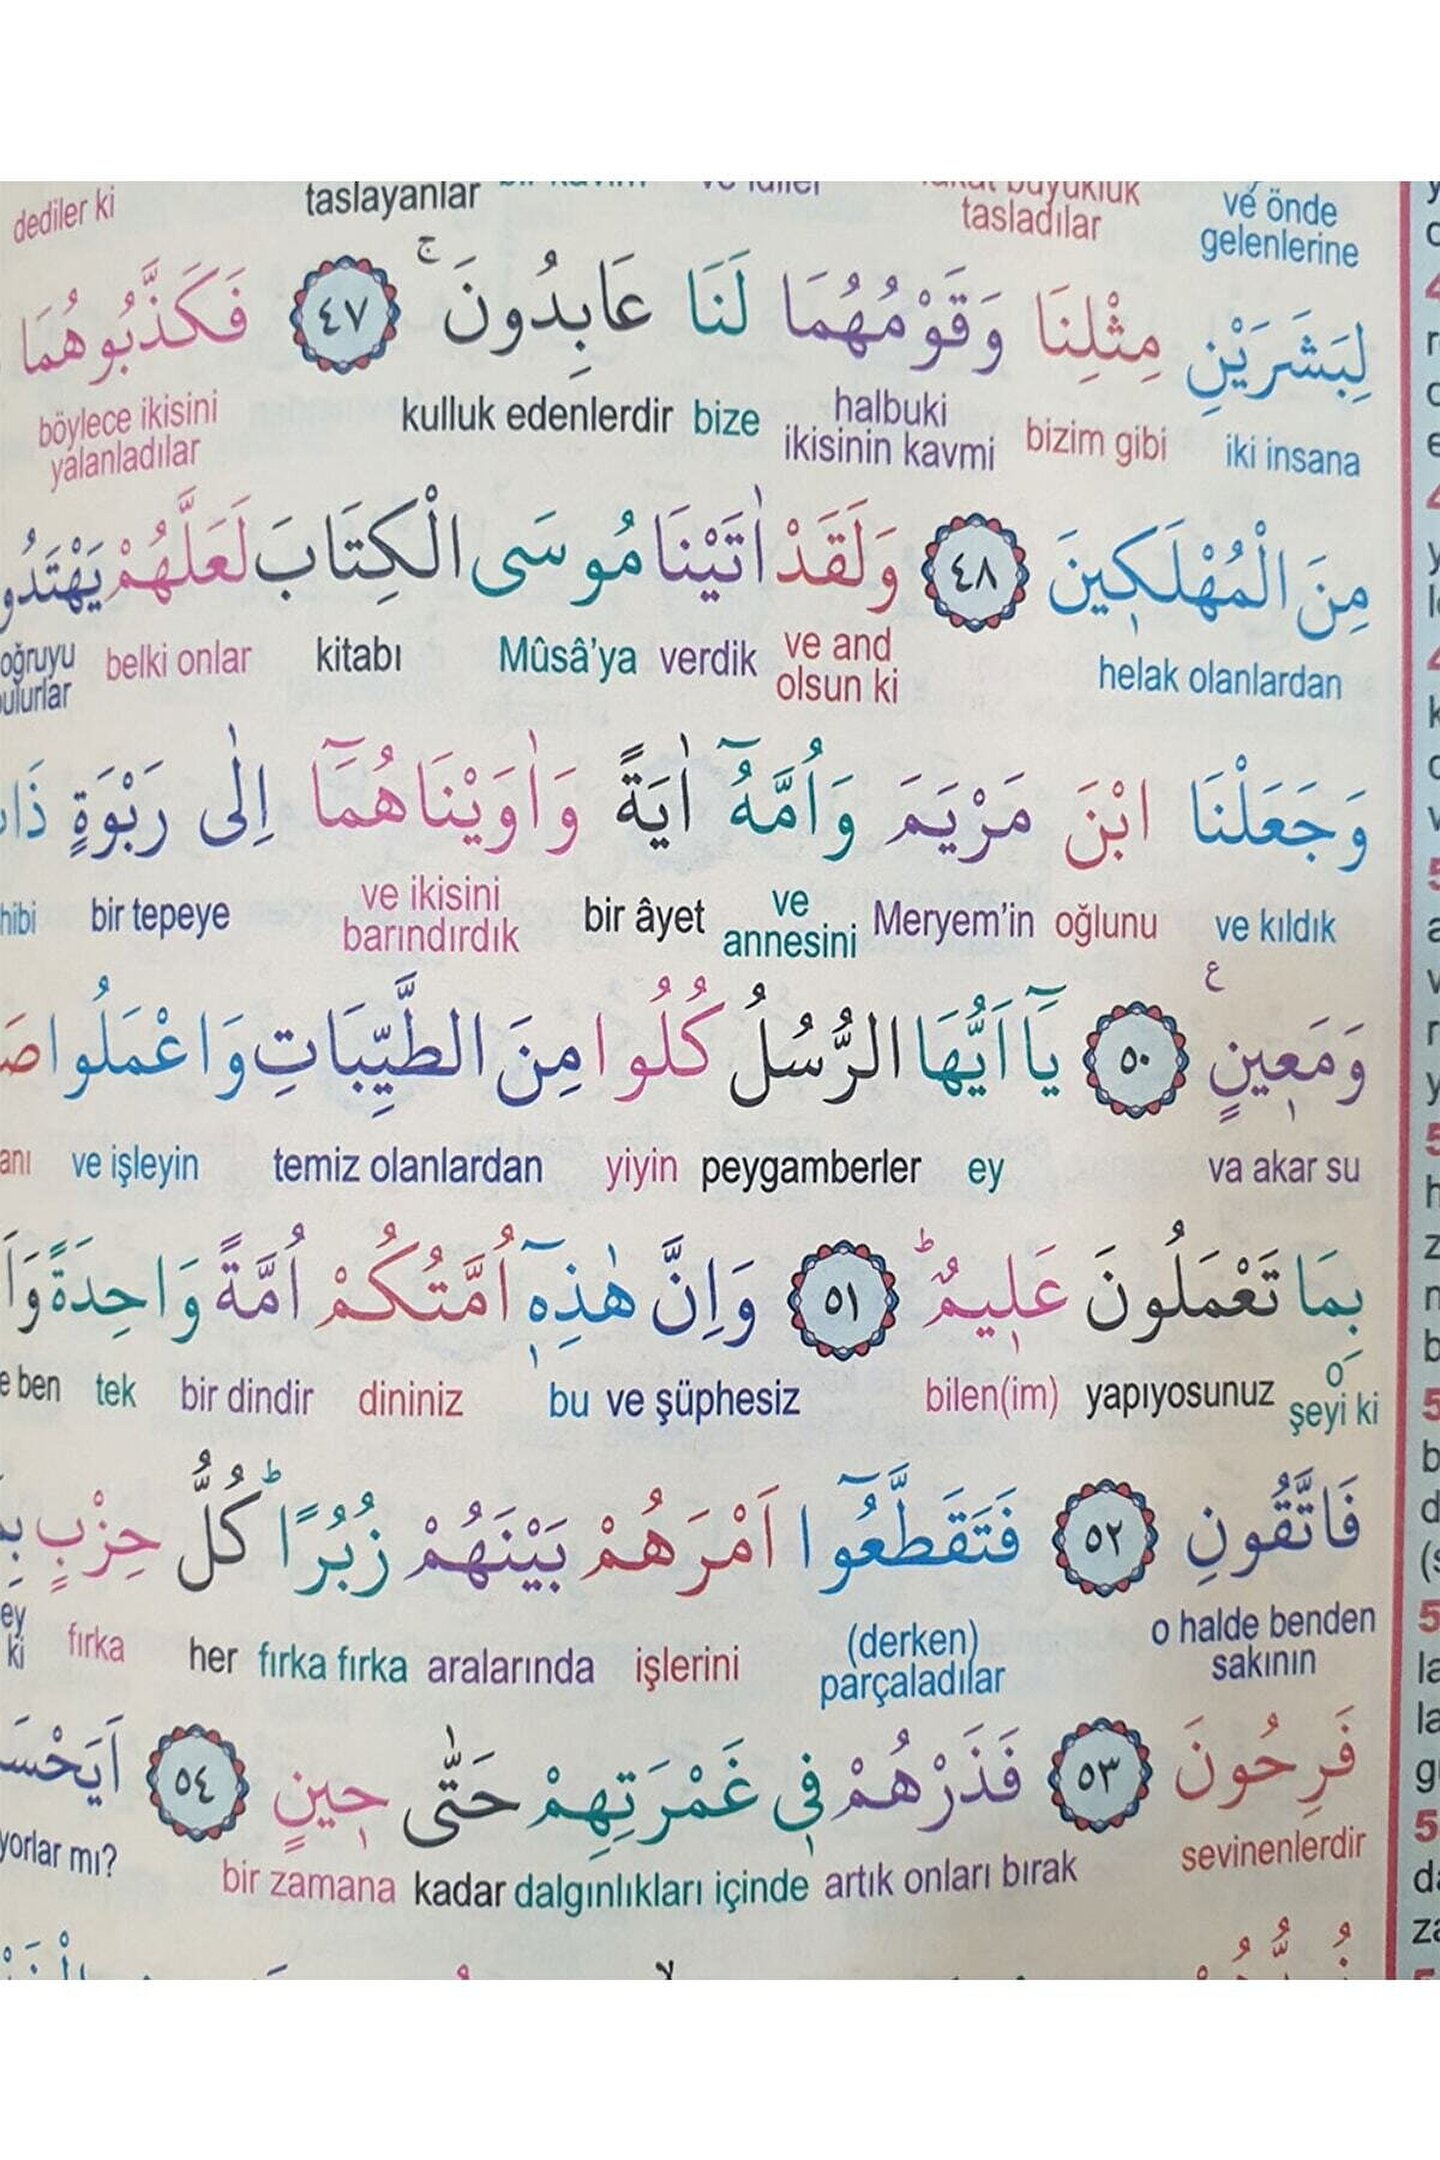 dediler ki taslayanlar tasladılar ve önde gelenlerine
لِبَشَرَيْنِ مِثْلِنَا وَقَوْمُهُمَا لَنَا عَابِدُونَۚ ٤٧ فَكَذَّبُوهُمَا
iki insana bizim gibi halbuki ikisinin kavmi bize kulluk edenlerdir böylece ikisini yalanladılar
مِنَ الْمُهْلَكٖينَ ٤٨ وَلَقَدْ اٰتَيْنَا مُوسَى الْكِتَابَ لَعَلَّهُمْ
helak olanlardan ve and olsun ki verdik Mûsâ’ya kitabı belki onlar
وَجَعَلْنَا ابْنَ مَرْيَمَ وَاُمَّهُٓ اٰيَةً وَاٰوَيْنَاهُمَٓا اِلٰى رَبْوَةٍ
ve kıldık oğlunu Meryem’in ve annesini bir âyet ve ikisini barındırdık bir tepeye
ع
وَمَعٖينٍ ٥٠ يَٓا اَيُّهَا الرُّسُلُ كُلُوا مِنَ الطَّيِّبَاتِ وَاعْمَلُوا
va akar su ey peygamberler yiyin temiz olanlardan ve işleyin
بِمَا تَعْمَلُونَ عَلٖيمٌؕ ٥١ وَاِنَّ هٰذِهٖٓ اُمَّتُكُمْ اُمَّةً وَاحِدَةً
o şeyi ki yapıyosunuz bilen(im) ve şüphesiz bu dininiz bir dindir tek ben
فَاتَّقُونِ ٥٢ فَتَقَطَّعُٓوا اَمْرَهُمْ بَيْنَهُمْ زُبُرًاؕ كُلُّ حِزْبٍ
o halde benden sakının (derken) parçaladılar işlerini aralarında fırka fırka her fırka
فَرِحُونَ ٥٣ فَذَرْهُمْ فٖي غَمْرَتِهِمْ حَتّٰى حٖينٍ ٥٤
sevinenlerdir artık onları bırak dalgınlıkları içinde kadar bir zamana mı?